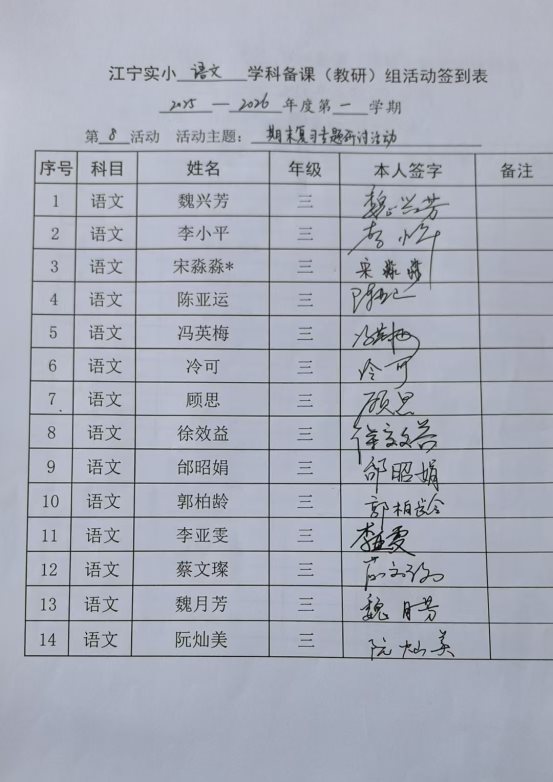 江宁实小 语文 学科备课（教研）组活动签到表
2025 — 2026 年度第 一 学期
第 8 活动 活动主题： 期末复习专题研讨活动
序号 科目 姓名 年级 本人签字 备注
1 语文 魏兴芳 三 魏兴芳
2 语文 李小平 三 李小平
3 语文 宋淼淼* 三 宋淼淼
4 语文 陈亚运 三 陈亚运
5 语文 冯英梅 三 冯英梅
6 语文 冷可 三 冷可
7 语文 顾思 三 顾思
8 语文 徐效益 三 徐效益
9 语文 邰昭娟 三 邰昭娟
10 语文 郭柏龄 三 郭柏龄
11 语文 李亚雯 三 李亚雯
12 语文 蔡文璨 三
13 语文 魏月芳 三 魏月芳
14 语文 阮灿美 三 阮灿美